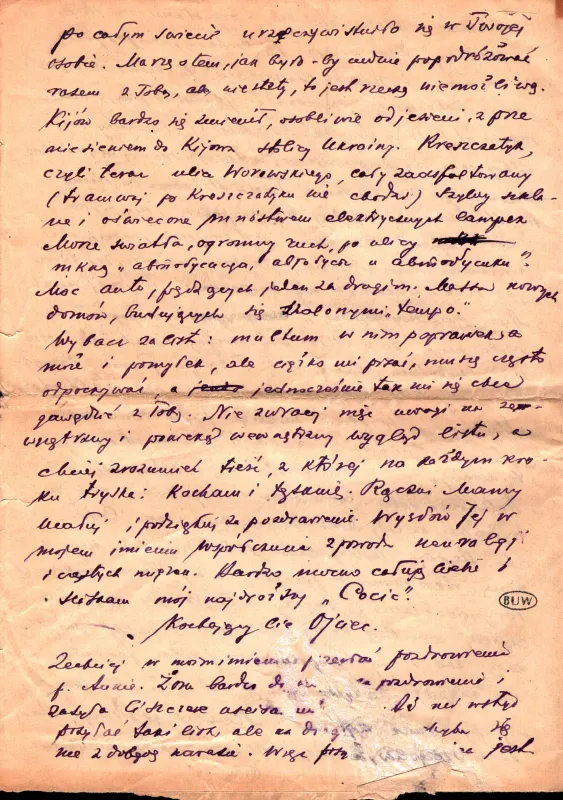 po całym świecie urzeczywistniło się w Twojej
osobie. Marzę o tem, jak było-by cudnie popodróżować
razem z Tobą, ale niestety, to jest rzeczą niemożliwą.
Kijów bardzo się zmienił, osobliwie od jesieni, z prze
niesieniem do Kijowa stolicy Ukrainy. Kreszczatyk,
czyli teraz ulica Worowskiego, cały zaasfaltowany
(tramwaj po Kreszczatyku nie chodzi) Szyby szkla-
ne i oświecone mnóstwem elektrycznych lampek
Morze światła, ogromny ruch, po ulicy
mkną
Moc aut, pędzących jeden za drugim. Massa nowych
domów, budujących się szalonym "tempo".
Wybacz za list: multum w nim poprawek, a
może i pomyłek, ale ciężko mi pisać, muszę często
odpoczywać a jednocześnie tak mi się chce
gawędzić z Tobą. Nie zwracaj więc uwagi na ze-
wnętrzny i poniekąd wewnętrzny wygląd listu, a
chciej zrozumieć treść, z której na każdym kro-
ku tryska: Kocham i tęsknię. Rączki Mamy
ucałuj i podziękuj za pozdrowienie. Wypowiedz Jej w
mojem imieniu współczucie z powodu neuralgji
i częstych migren. Bardzo mocno całuję Ciebie i
ściskam mój najdroższy "Cocic".
Kochający Cię Ojciec.
BUW
Zechciej w mojem imieniu przesłać pozdrowienie
p. Annie. Zosia bardzo za pozdrowienie i
Aż mi wstyd
posyłać taki list, ale na
nie z dobrą Więc jest